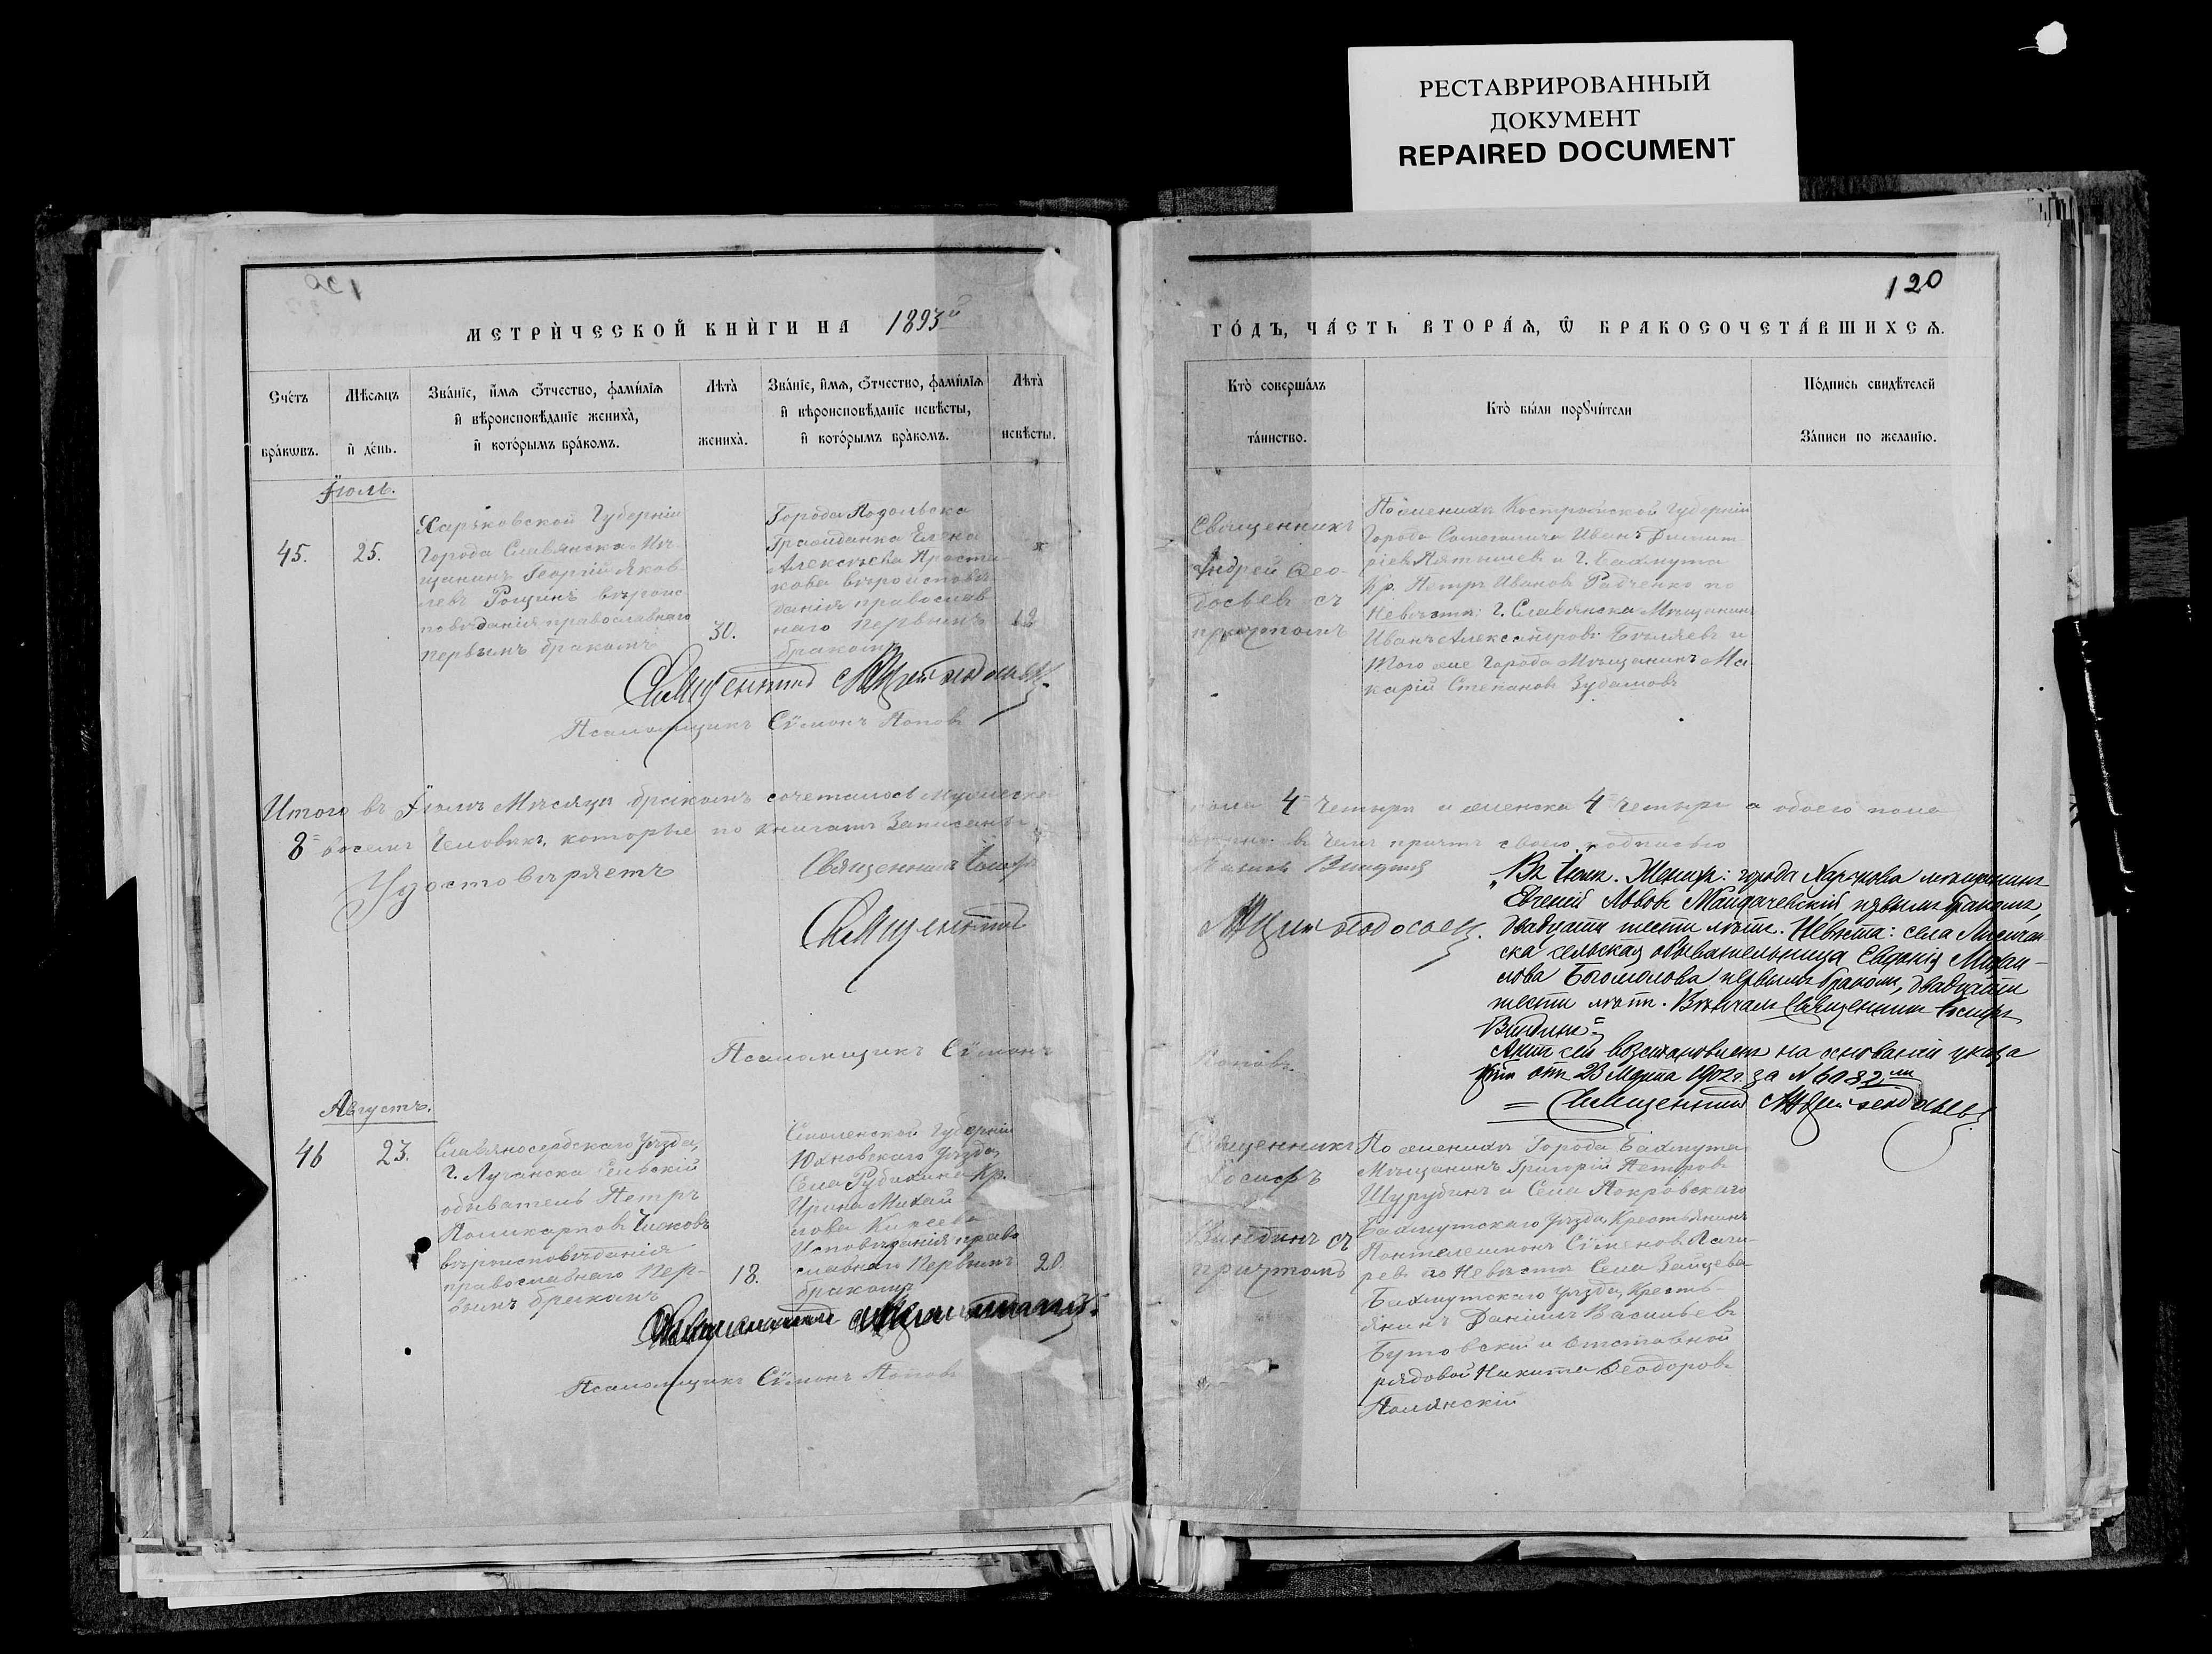 РЕСТАВРИРОВАННЫЙ
ДОКУМЕНТ
REPAIRED DOCUMENT
120
МЕТРИ́ЧЕСКОЙ КНИ́ГИ НА 1893й
ГО́ДЪ, ЧА́СТЬ ВТОРА́Ѧ, Ѡ҆ БРАКОСОЧЕТА́ВШИХСѦ.
Сче́тъ
бра́кѡвъ.
Мѣ́сѧцъ
и҆ де́нь.
Зва́нїе, и҆́мѧ ѻ҆́тчество, фами́лїѧ
и҆ вѣроисповѣ́данїе жениха̀,
и҆ кото́рымъ бра́комъ.
Лѣта̀
жениха̀.
Зва́нїе, и҆́мѧ, ѻ҆́тчество, фами́лїѧ
и҆ вѣроисповѣ́данїе невѣ́сты,
и҆ кото́рымъ бра́комъ.
Лѣта̀
невѣ́сты.
Кто̀ соверша́лъ
та́инство.
Кто̀ бы́ли порꙋчи́тели
По́дпись свидѣ́телей
За́писи по жела́нїю.
Іюль.
45.
25.
Харьковской Губерніи
Города Славянска Мѣ-
щанинъ Георгій Яков-
левъ Рощинъ вѣроис
повѣданія православнаго
первымъ бракомъ
30.
Города Подольска
Гражданка Елена
Алексѣева
вѣроисповѣ-
данія православ
наго первымъ
бракомъ
Священникъ
Андрей Ѳео-
досьевъ съ
причтомъ
По женихѣ Костромской Губерніи
Города Иванъ Димит
ріевъ и Г. Бахмута
Кр. Петръ Ивановъ Радченко по
Невѣстѣ: Г. Славянска Мѣщанинъ
Иванъ Александровъ Бѣляевъ и
того же Города Мѣщанинъ Ма
карій Степановъ
Священникъ
Псаломщикъ Сѵмонъ Поповъ
Итого въ Іюлѣ Мѣсяцѣ бракомъ сочеталось мужеска
пола 4 четыре и женска 4 четыре а обоего пола
8 восемь человѣкъ, которые по книгамъ записаны
въ чемъ причтъ своею подписью
Удостовѣряетъ
Священникъ Іосифъ
Священникъ
Псаломщикъ Сѵмонъ
Поповъ
Женихъ: города Харькова мѣщанинъ
Евгеній Львовъ первымъ бракомъ,
двадцати шести лѣтъ. Невѣста: села Лисичан-
ска сельская обывательница Евдокія Михаи-
лова Богомолова первымъ бракомъ, двадцати
шести лѣтъ. Вѣнчалъ Священникъ Іосифъ
Виндинъ
Актъ сей возстановленъ на основаніи указа
отъ 23 Марта 1902 г. за № 6082
Священникъ
Августъ.
46
23.
Славяносербскаго Уѣзда,
г. Луганска Сельскій
обыватель Петръ
Поликарповъ
вѣроисповѣданія
православнаго пер-
вымъ бракомъ
18.
Смоленской Губерніи
Юхновскаго Уѣзда
Села Кр.
Ирина Михай
лова Киреева
Исповѣданія право
славнаго первымъ
бракомъ
20
Священникъ
Іосифъ
Виндинъ съ
причтомъ
По женихѣ Города Бахмута
Мѣщанинъ Григорій Петровъ
Шурубинъ и Села Покровскаго
Бахмутскаго Уѣзда Крестьянинъ
Пантелеимонъ Сѵменовъ
по Невѣстѣ Села Зайцева
Бахмутскаго Уѣзда, Кресть-
янинъ Даніилъ Васильевъ
Бутовскій и отставной
рядовой Никита Ѳеодоровъ
Полянскій
Псаломщикъ Сѵмонъ Поповъ